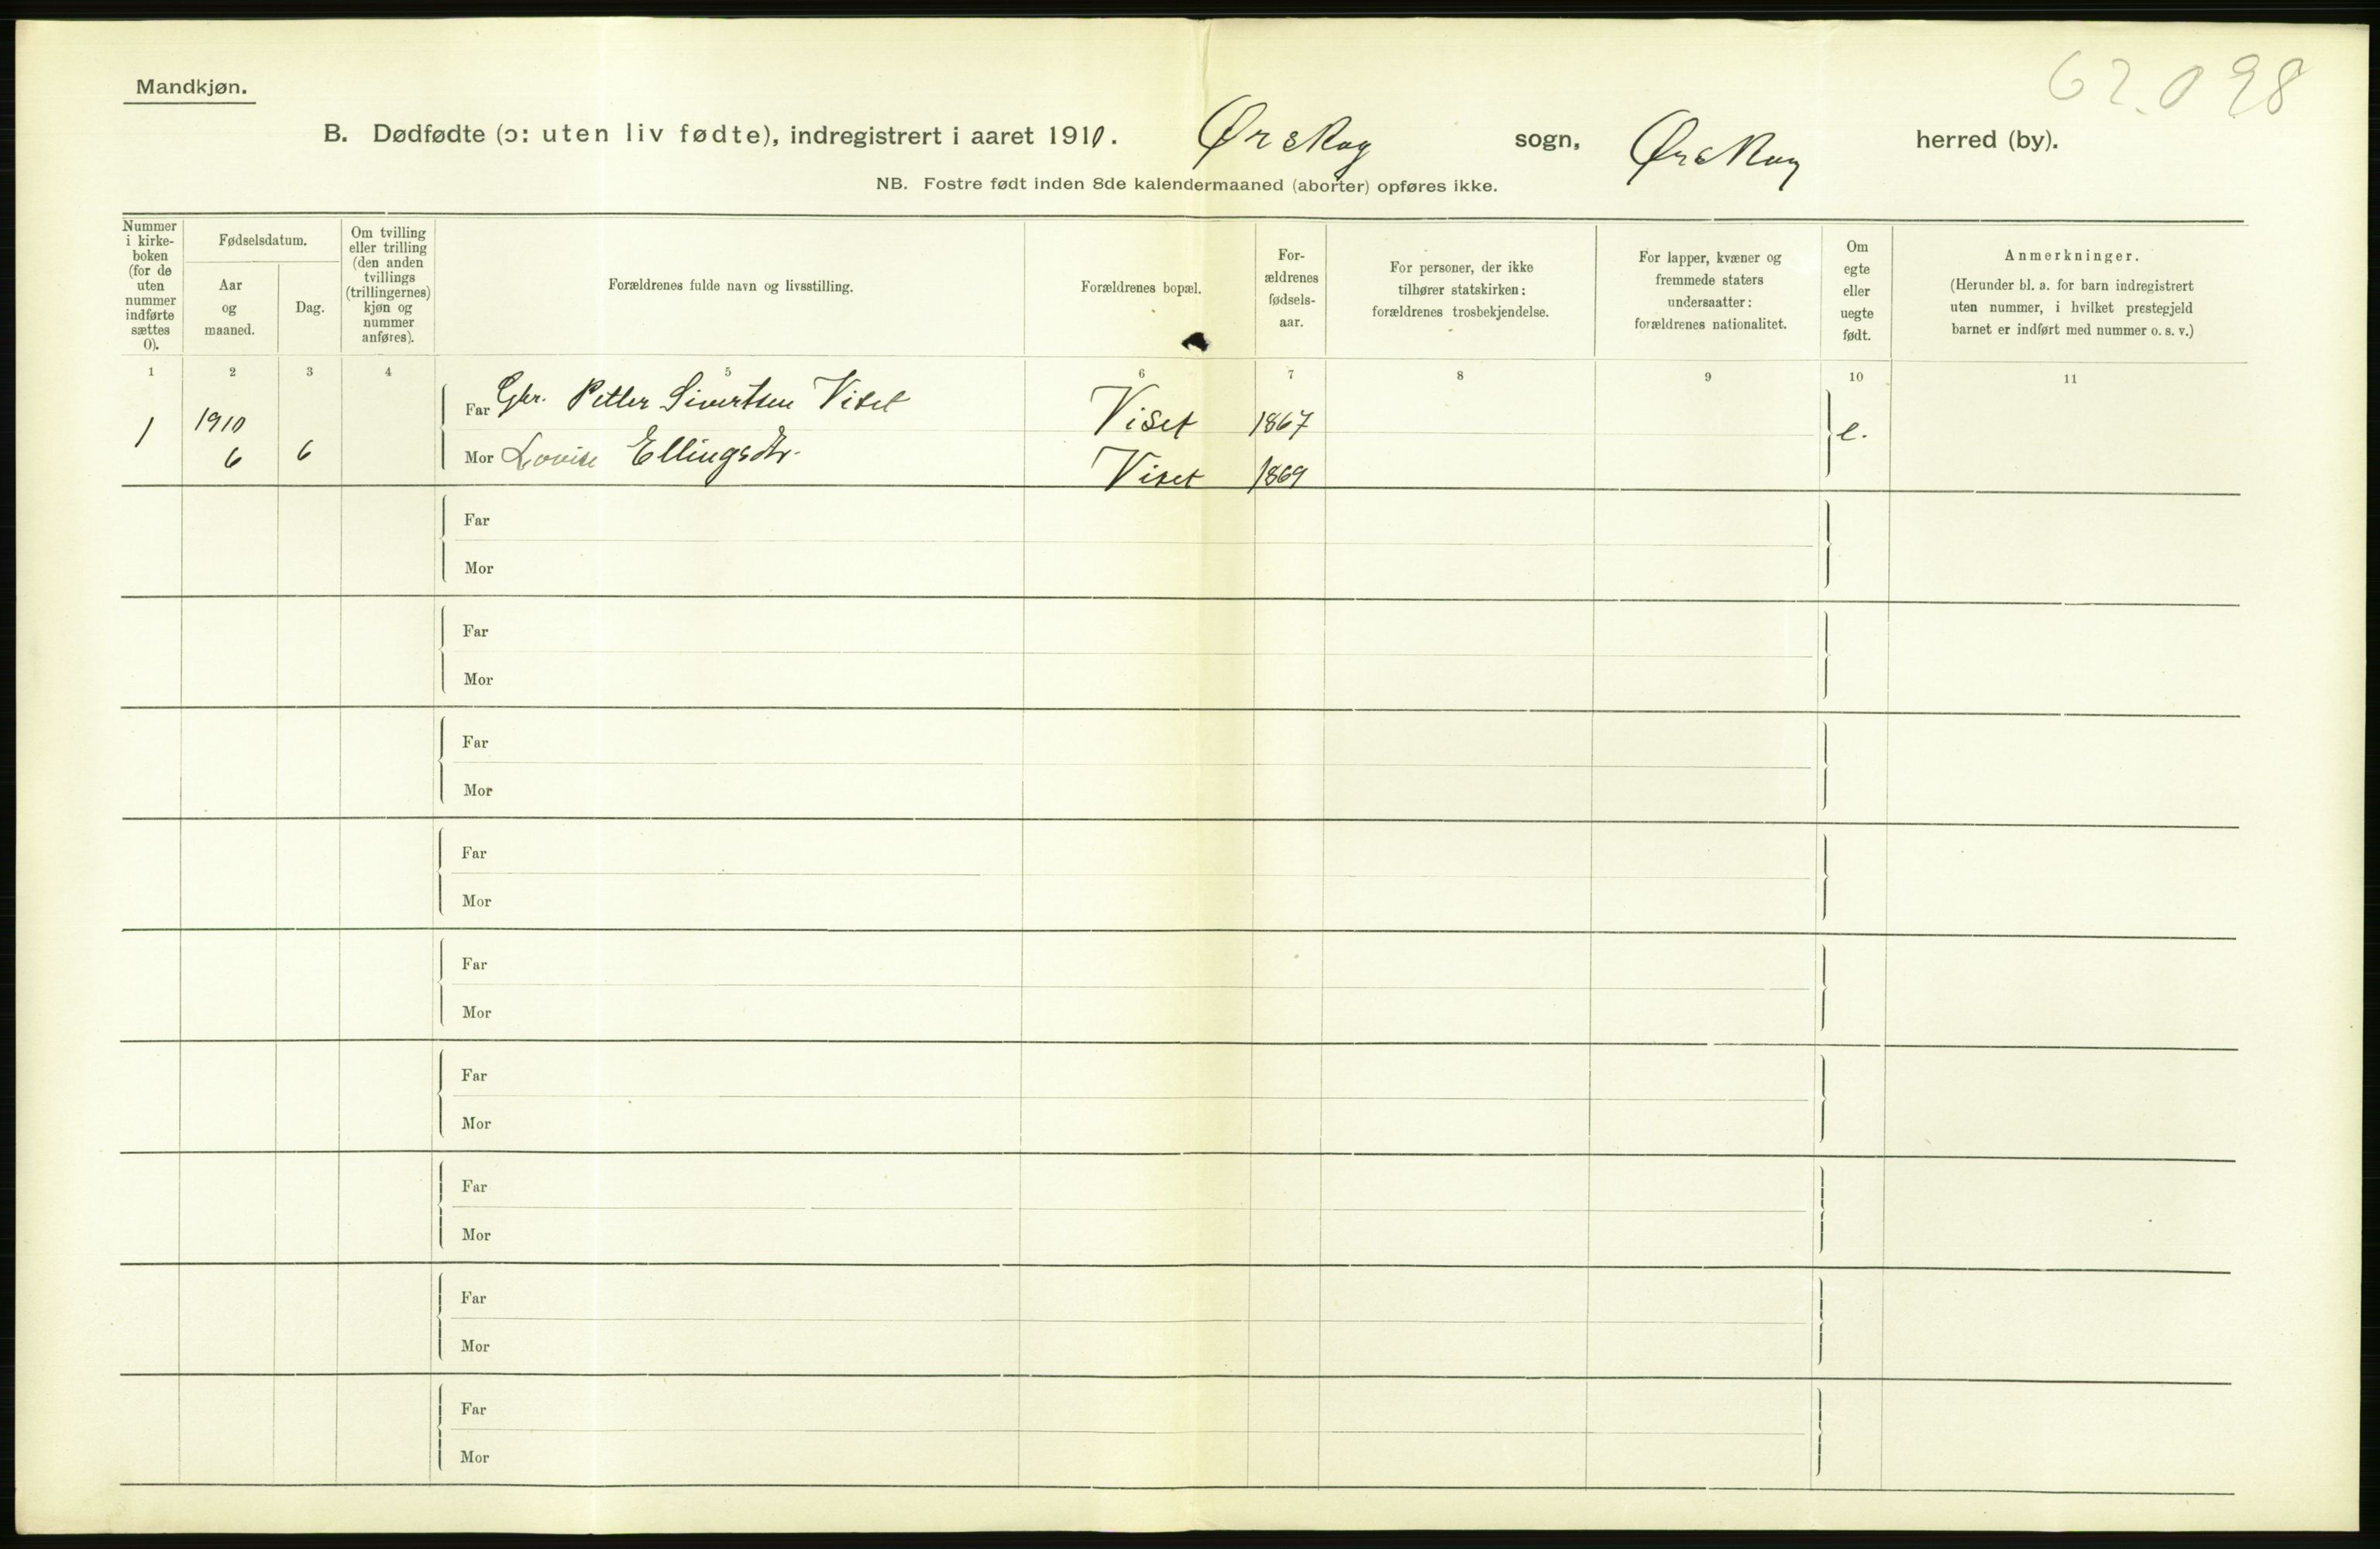 62.098
Mandkjøn.
B. Dødfødte (ɔ: uten liv fødte), indregistrert i aaret 1910. Ørskog sogn, Ørskog herred (by).
NB. Fostre født inden 8de kalendermaaned (aborter) opføres ikke.
Nummer
i kirke-
boken
(for de
uten
nummer
indførte
sættes
0).
Fødselsdatum.
Aar
og
maaned.
Dag.
Om tvilling
eller trilling
(den anden
tvillings
(trillingernes)
kjøn og
nummer
anføres).
Forældrenes fulde navn og livsstilling.
Forældrenes bopæl.
For-
ældrenes
fødsels-
aar.
For personer, der ikke
tilhører statskirken:
forældrenes trosbekjendelse.
For lapper, kvæner og
fremmede staters
undersaatter:
forældrenes nationalitet.
Om
egte
eller
uegte
født.
Anmerkninger.
(Herunder bl. a. for barn indregistrert
uten nummer, i hvilket prestegjeld
barnet er indført med nummer o. s. v.)
1 2 3 4 5 6 7 8 9 10 11
1 1910 6 6
Far Gbr. Petter Sivertsen Viset Viset 1867 e.
Mor Lovise Ellingsdtr. Viset 1869
Far
Mor
Far
Mor
Far
Mor
Far
Mor
Far
Mor
Far
Mor
Far
Mor
Far
Mor
Far
Mor